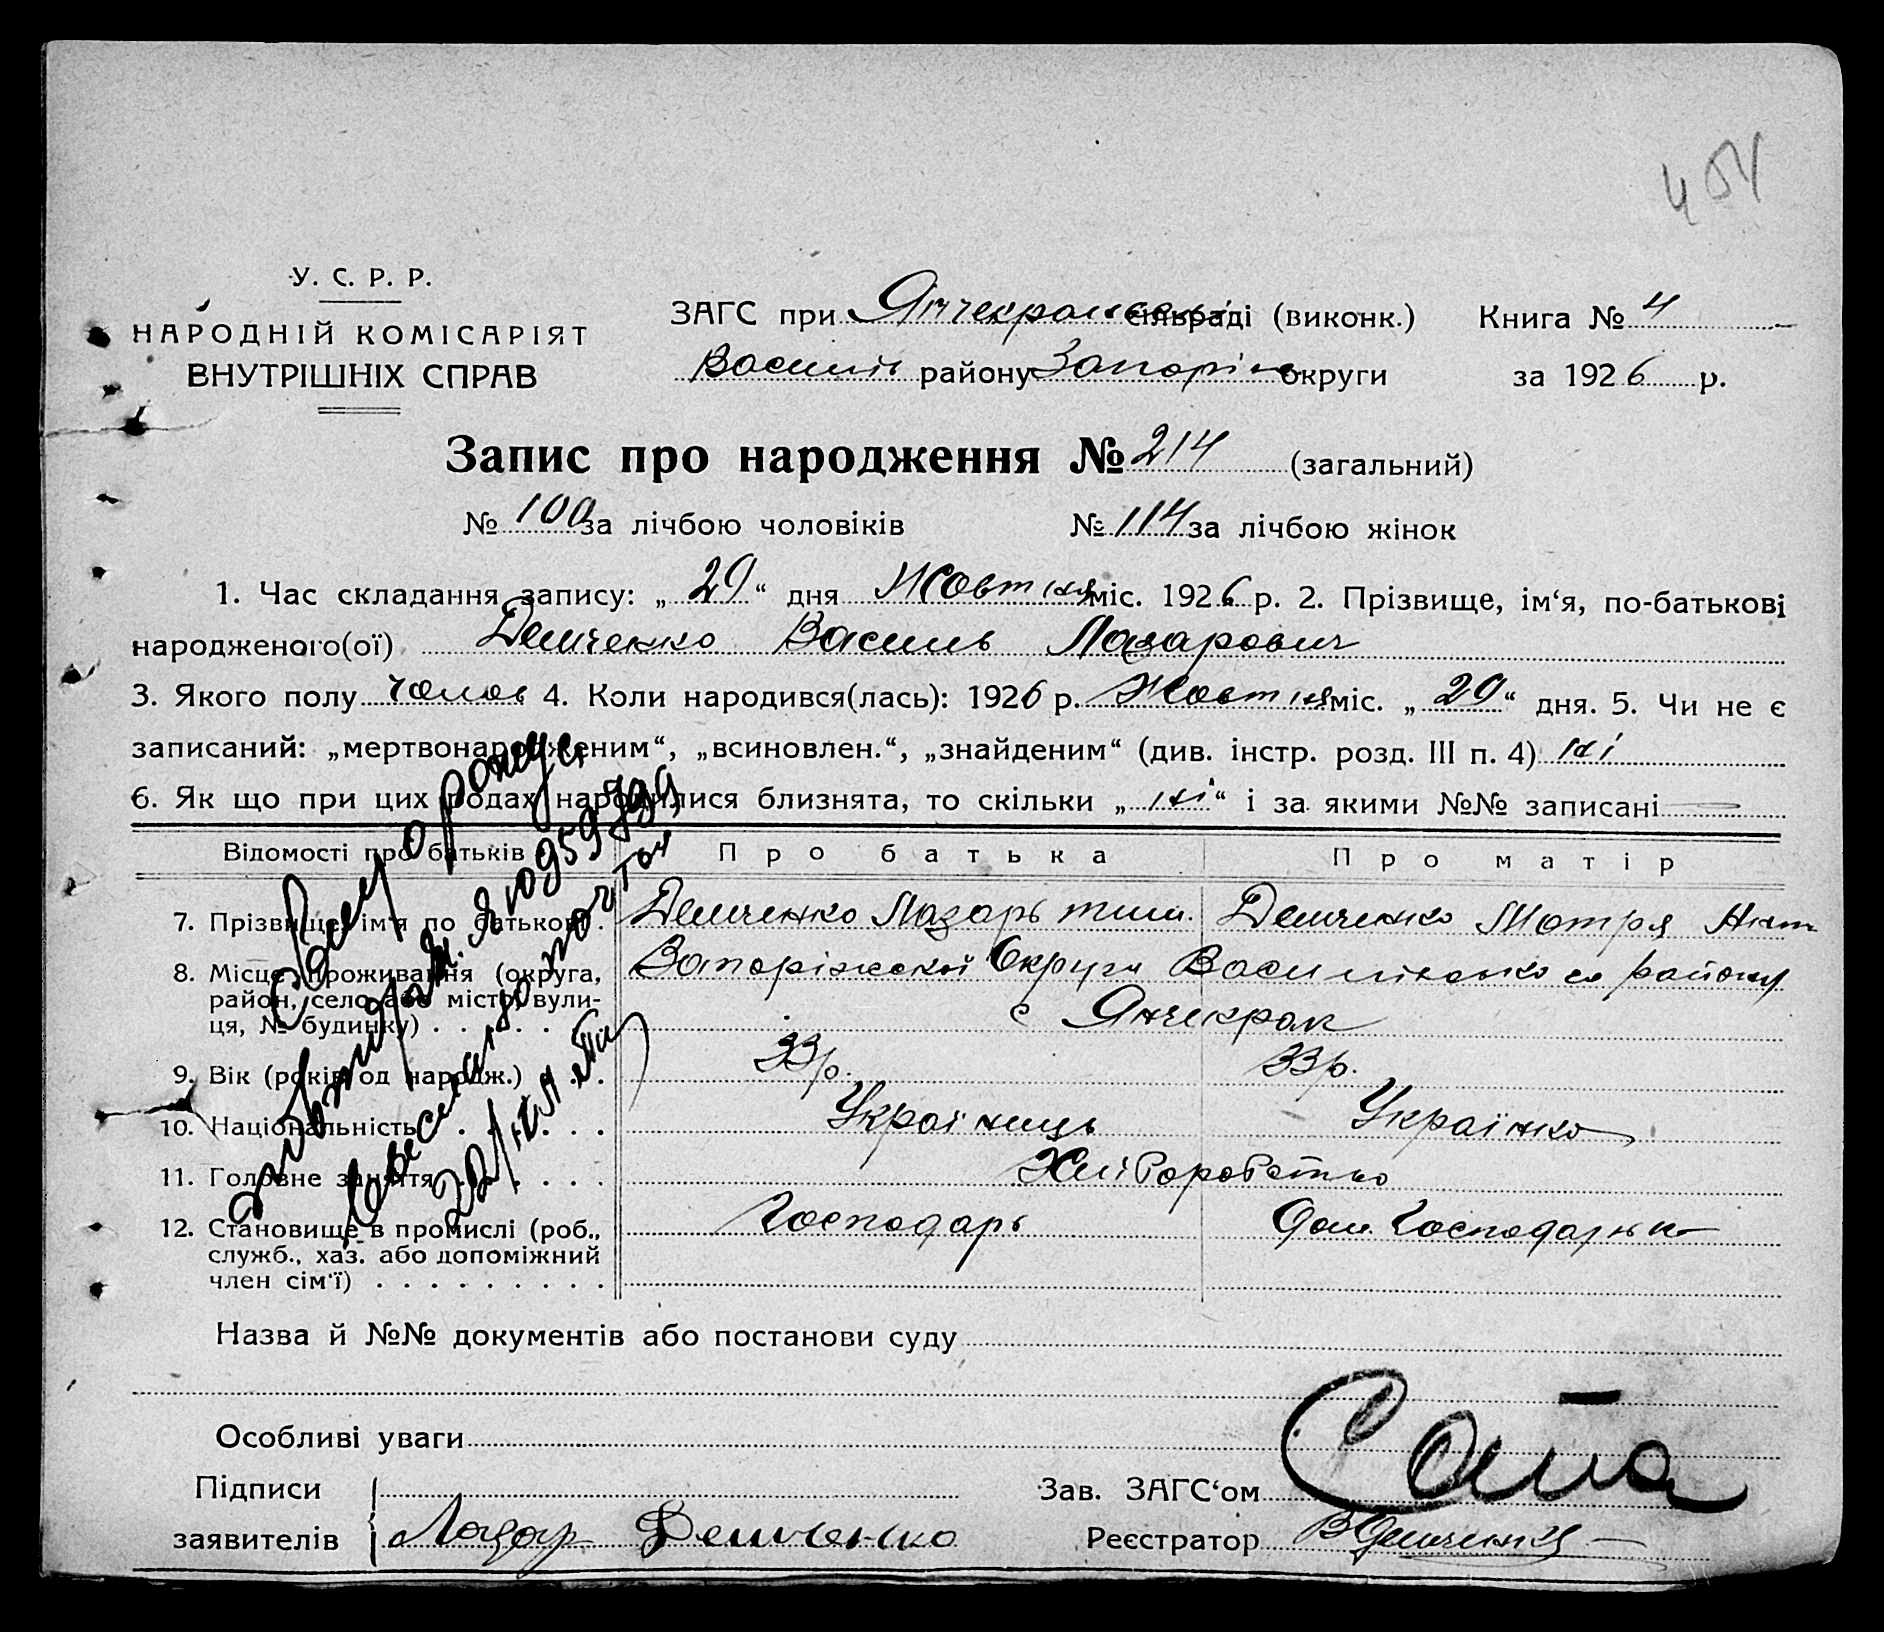 454
У. С. Р. Р.
НАРОДНІЙ КОМІСАРІЯТ
ВНУТРІШНІХ СПРАВ
ЗАГС при Янчекракській сільраді (виконк.) Книга № 4
Василів району Запоріж округи за 1926 р.
Запис про народження № 214 (загальний)
№ 100 за лічбою чоловіків № 114 за лічбою жінок
1. Час складання запису: „ 29 “ дня Жовтня міс. 1926 р. 2. Прізвище, ім‘я, по-батькові
народженого(ої) Демченко Василь Лазарович
3. Якого полу чолов 4. Коли народився(лась): 1926 р. Жовтня міс. „ 29 “ дня. 5. Чи не є
записаний: „мертвонародженим“, „всиновлен.“, „знайденим“ (див. інстр. розд. III п. 4) ні
6. Як що при цих родах народилися близнята, то скільки „ ні “ і за якими №№ записані
Відомості про батьків Про батька Про матір
7. Прізвище, ім‘я по батькові. Демченко Лазарь тим. Демченко Мотря
8. Місце проживання (округа,
район, село або місто, вули-
ця, № будинку) . . . . . Запоріжської Округи Василівсько го району
с Янчекрак
9. Вік (років од народж.) . . . 33 р. 33 р.
10. Національність . . . . . . Українець Українко
11. Головне заняття . . . . . . Хліборобство
12. Становище в промислі (роб.,
служб., хаз. або допоміжний
член сім‘ї) . . . . . . . . . Господарь дом. Господарька
Назва й №№ документів або постанови суду
Особливі уваги
Підписи
заявителів Лазар Демченко
Зав. ЗАГС‘ом
Реєстратор В Демченко